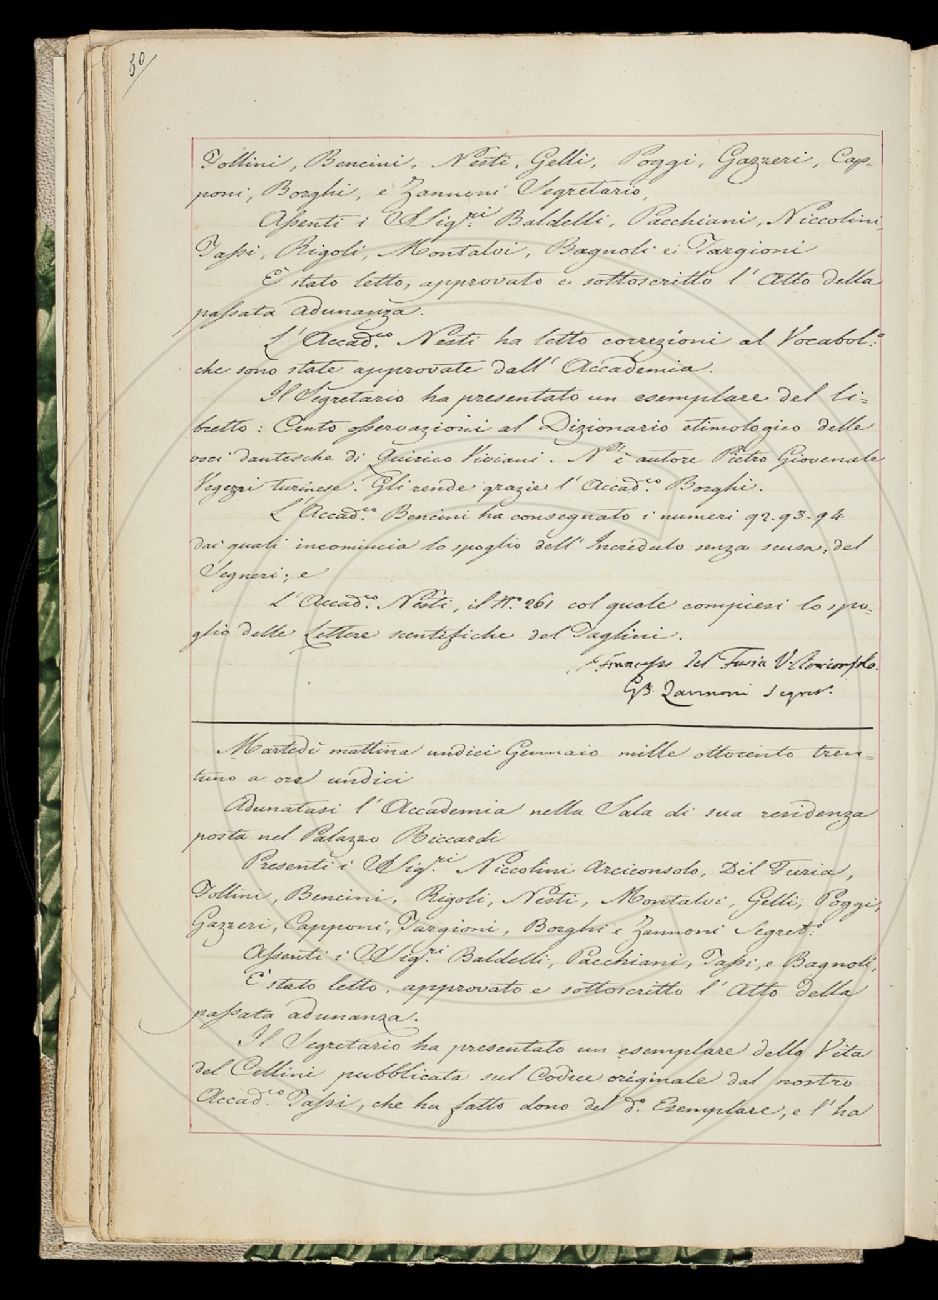 30
Follini, Bencini, Nesti, Gelli, Poggi, Gazzeri, Cap-
poni, Borghi, e Zannoni Segretario,
Assenti i SSig.ri Baldelli, Pacchiani, Niccolini,
Tassi, Rigoli, Montalvi, Bagnoli e Targioni
È stato letto, approvato e sottoscritto l'Atto della
passata adunanza.
L'Accad.co Nesti ha letto correzioni al Vocabol.o
che sono state approvate dall'Accademia.
Il Segretario ha presentato un esemplare del li=
bretto: Cento osservazioni al Dizionario etimologico delle
voci dantesche di Quirico Viviani. N'è autore Pietro Giovenale
Vegezzi turinese. Gli rende grazie l'Accad.co Borghi.
L'Accad.co Bencini ha consegnato i numeri 92. 93. 94
dai quali incomincia lo spoglio dell'Incredulo senza scusa, del
Segneri; e
L'Accad.co Nesti, il N.o 261 col quale compiesi lo spo=
glio delle Lettere scentifiche del Taglini.
Francesco Del Furia V. Arciconsolo.
GB. Zannoni Segret.
Martedì mattina undici Gennaio mille ottocento tren=
tuno a ore undici
Adunatasi l'Accademia nella Sala di sua residenza
posta nel Palazzo Riccardi
Presenti i SSig.ri Niccolini Arciconsolo, Del Furia,
Follini, Bencini, Rigoli, Nesti, Montalvi, Gelli, Poggi,
Gazzeri, Capponi, Targioni, Borghi e Zannoni Segret.o
Assenti i SSig.ri Baldelli, Pacchiani, Tassi, e Bagnoli,
È stato letto, approvato e sottoscritto l'Atto della
passata adunanza.
Il Segretario ha presentato un esemplare della Vita
del Cellini pubblicata sul Codice originale dal nostro
Accad.co Tassi, che ha fatto dono del d.o Esemplare, e l'ha